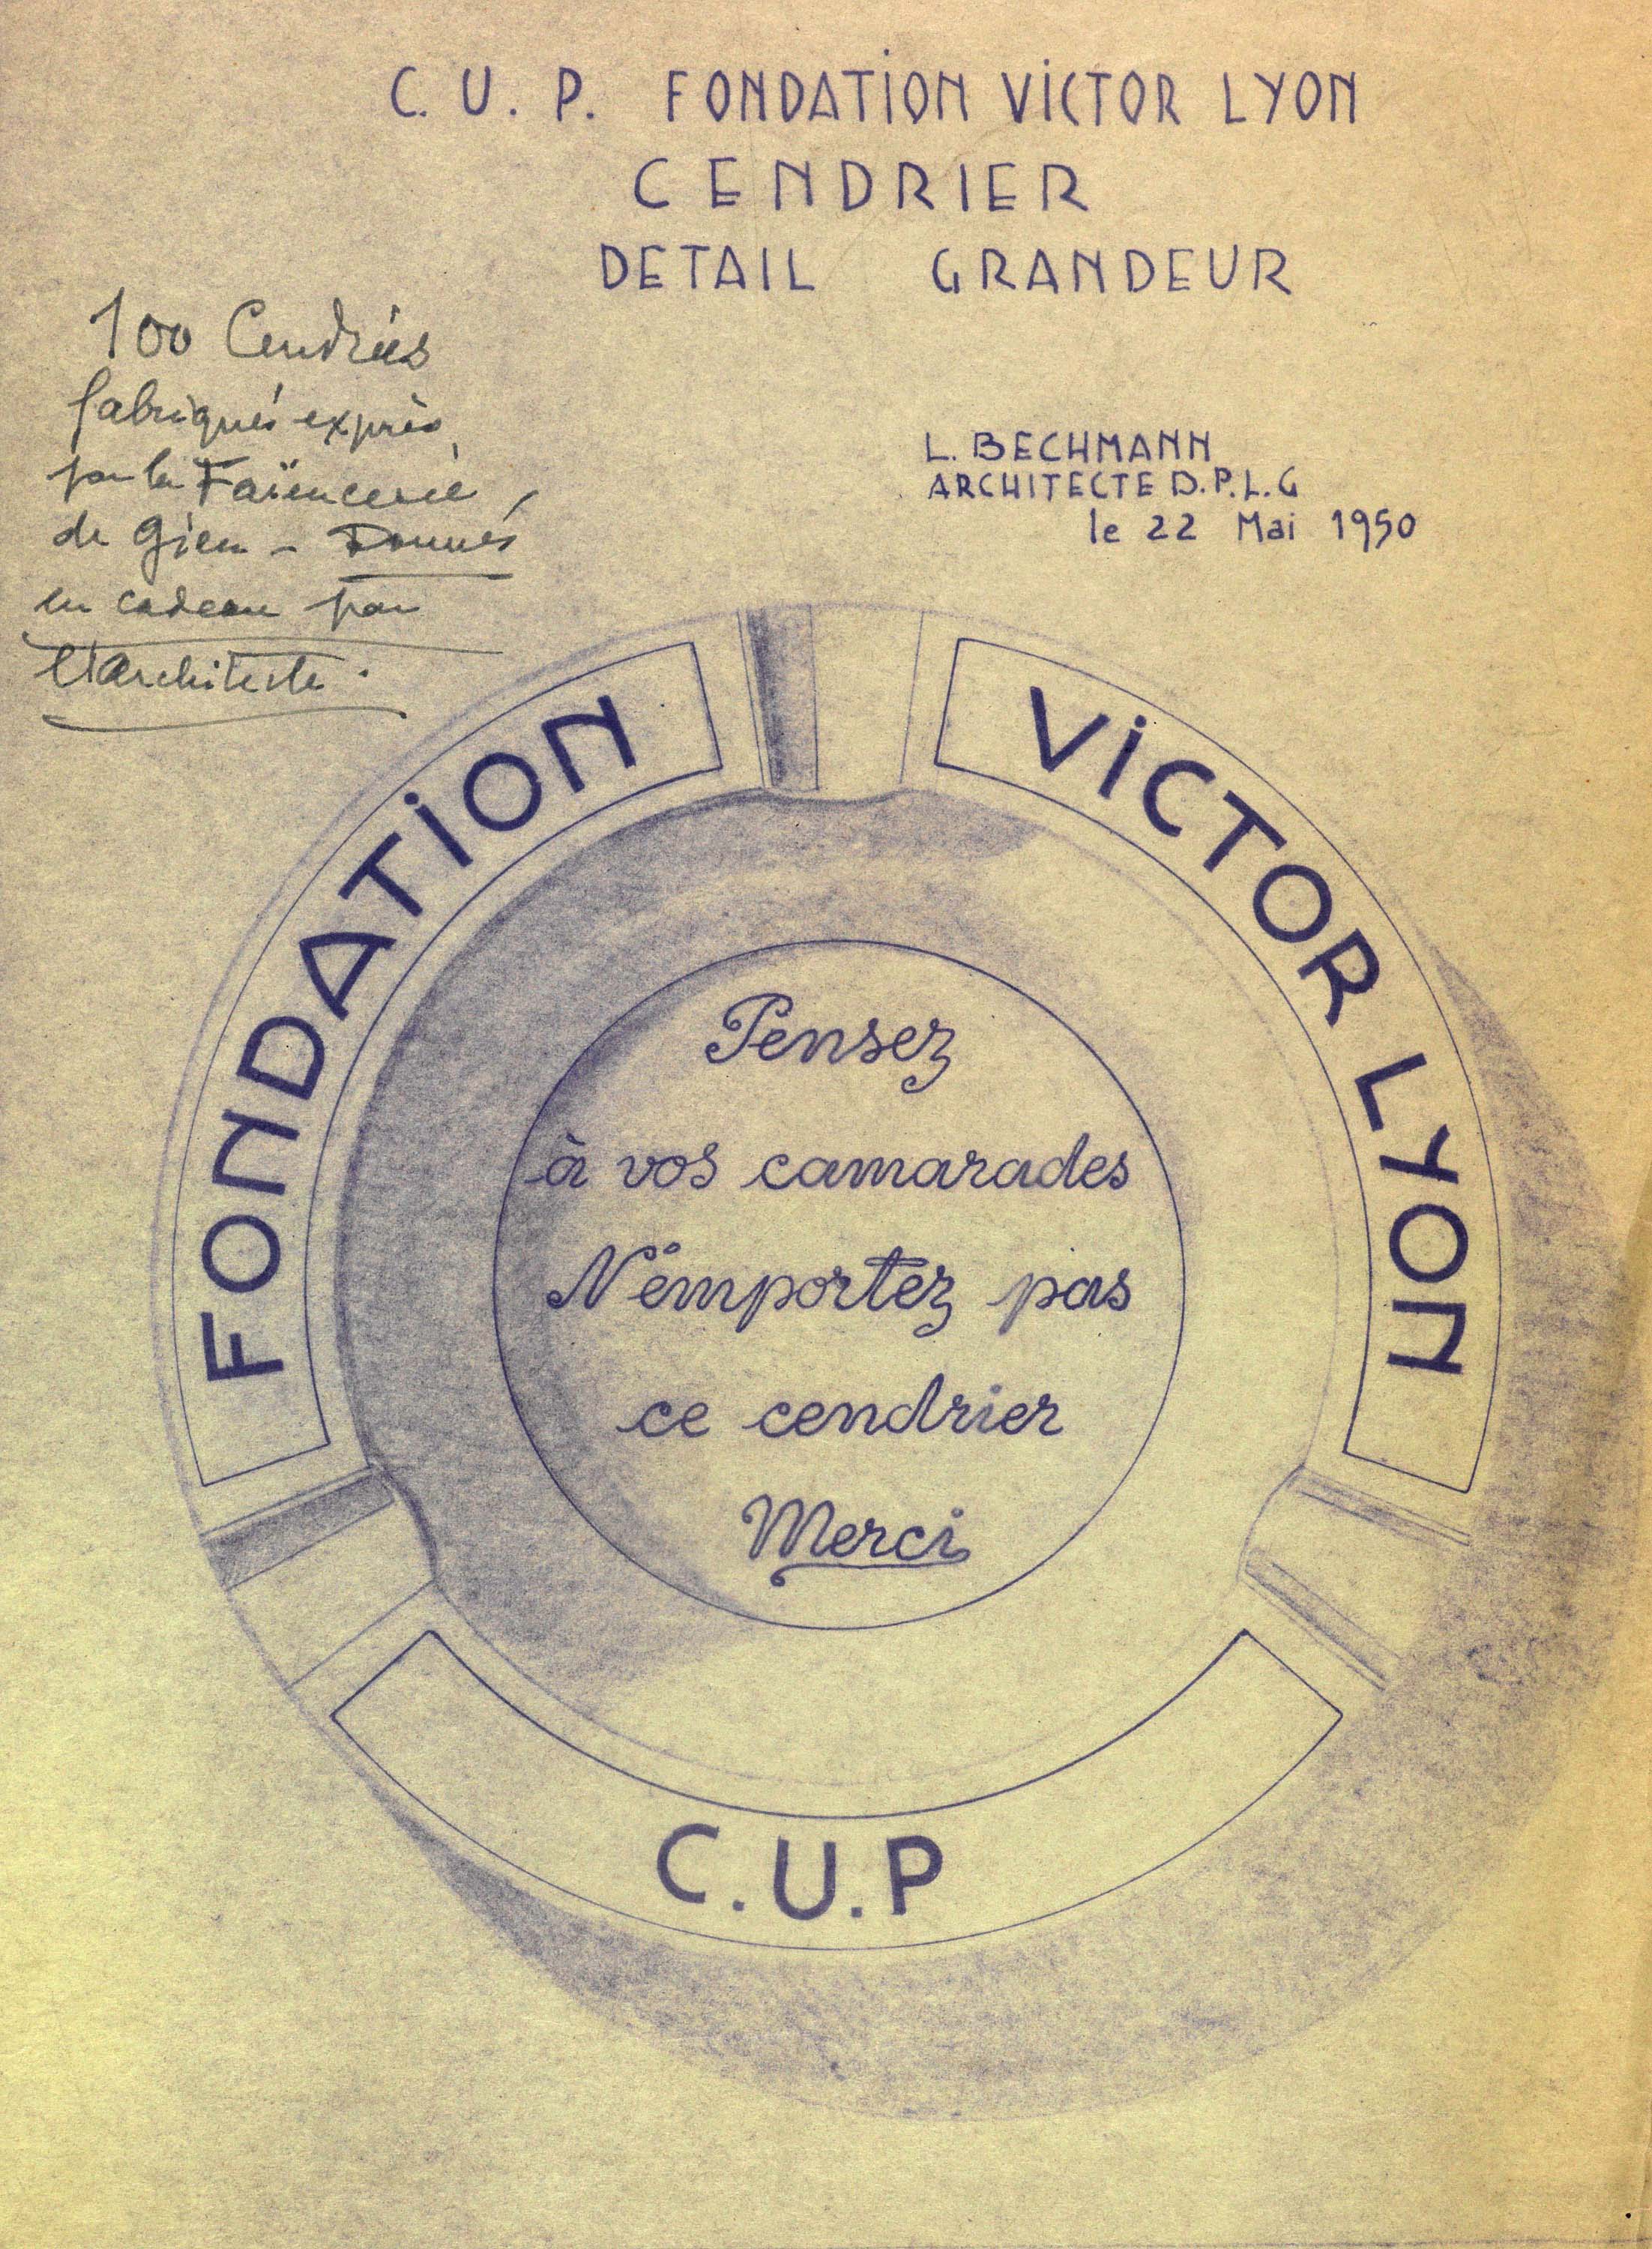 C. U. P. FONDATION VICTOR LYON
CENDRIER
DETAIL GRANDEUR
100 Cendriers
fabriqués exprès
par la Faïencerie
de Gien - Donnés
en cadeau par
l'architecte.
L. BECHMANN
ARCHITECTE D.P.L.G
le 22 Mai 1950
FONDATION
VICTOR LYON
Pensez
à vos camarades
N'emportez pas
ce cendrier
Merci
C.U.P